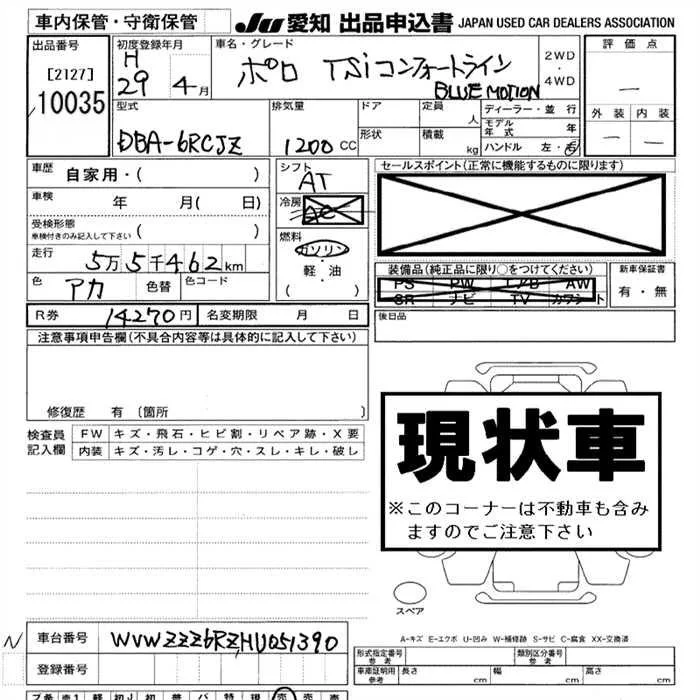 車内保管・守衛保管
JU 愛知 出品申込書 JAPAN USED CAR DEALERS ASSOCIATION
出品番号 初度登録年月 車名・グレード 2WD・4WD 評価点
[2127] H 29 4月 ポロ TSiコンフォートライン —
10035 BLUE MOTION
型式 排気量 ドア 定員 人 ディーラー・並行 外装 内装
DBA-6RCJZ 1200 CC 形状 積載 kg モデル年式 年 — —
ハンドル 左・右
車歴 自家用・( ) シフト AT セールスポイント(正常に機能するものに限ります)
車検 年 月( 日) 冷房 AC
受検形態 車検付きのみ記入して下さい ( ) 燃料 ガソリン・軽・油 ( )
走行 5万5千462km
装備品(純正品に限り○をつけてください) 新車保証書
色 アカ 色替 色コード PS PW エアB AW 有・無
SR ナビ TV カワシート
R券 14270円 名変期限 月 日 後日品
注意事項申告欄(不具合内容等は具体的に記入して下さい)
修復歴 有 〔箇所 〕
検査員記入欄 FW キズ・飛石・ヒビ割・リペア跡・X要
内装 キズ・汚レ・コゲ・穴・スレ・キレ・破レ
現状車
※このコーナーは不動車も含み
ますのでご注意下さい
スペア
A-キズ E-エクボ U-凹み W-補修跡 S-サビ C-腐食 XX-交換済
N 車台番号 WVWZZZ6RZHU051390
登録番号
形式指定番号 参考 類別区分番号 参考
車庫証明用 参考 長さ cm 幅 cm 高さ cm